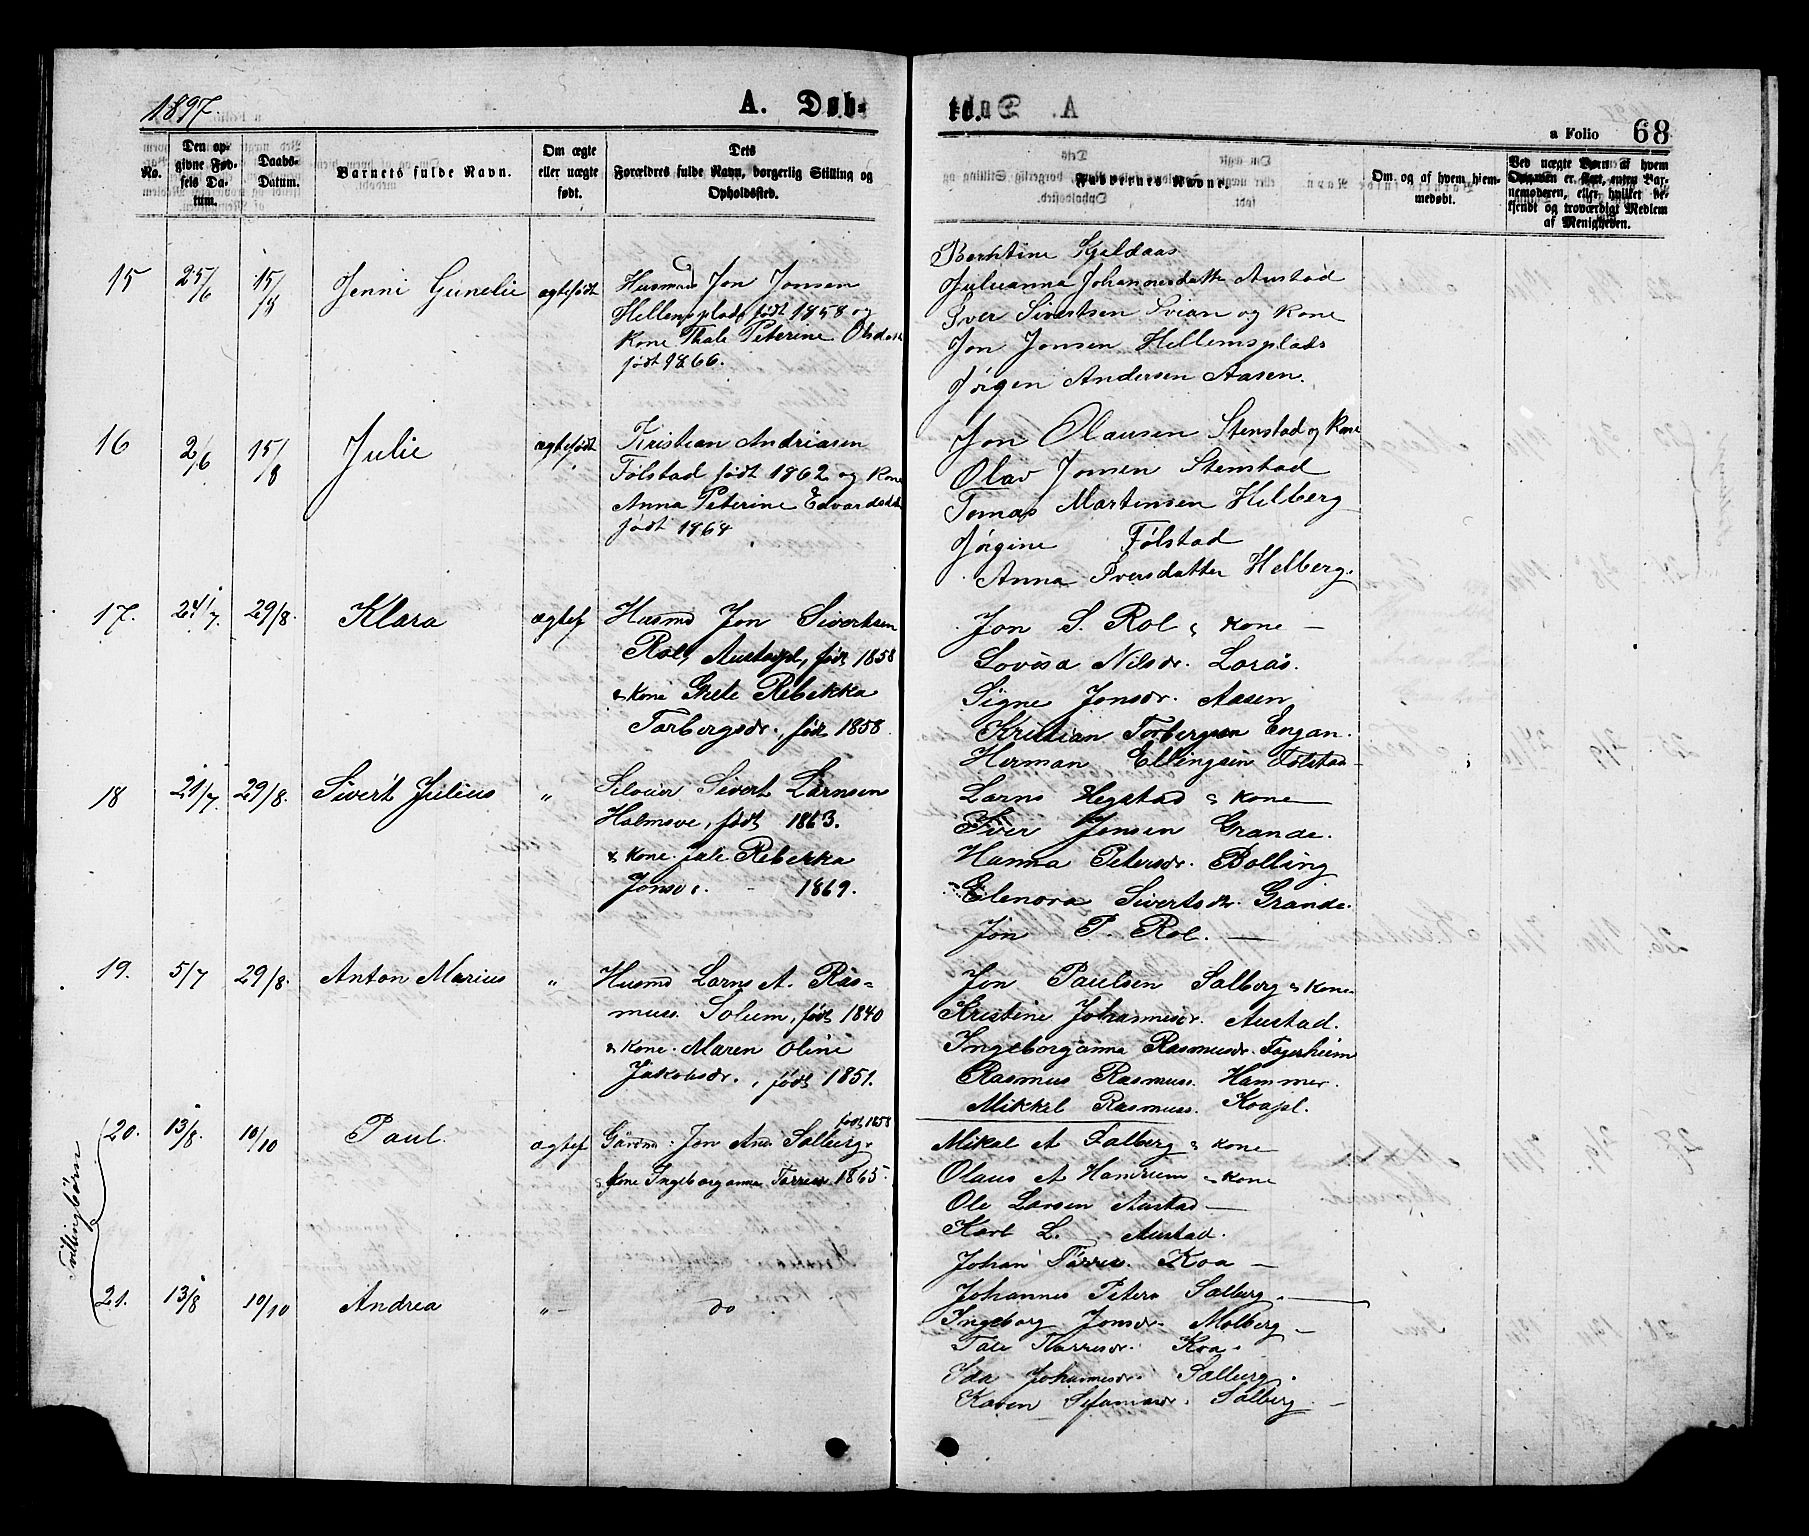 1897.
A. Døb-
te.
a Folio 68
No.
Den op-
givne Fød-
sels Da-
tum.
Daabs-
Datum.
Barnets fulde Navn.
Om ægte
eller uægte
født.
Dets
Forældres fulde Navn, borgerlig Stilling og
Opholdssted.
Faddernes Navne.
Om og af hvem hjem-
medøbt.
Ved uægte Børn af hvem
Opgaven er skeet, enten Bar-
nemoderen, eller hvilket be-
kjendt og troværdigt Medlem
af Menigheden.
15 25/6 15/8 Jenni Gunelie ægtefødt
Husmand Jon Jonsen
Hellemsplads født 1858 og
Kone Thale Peterine Olsdatt
født 1866.
Berntine Kjeldaas
Julieanna Johannesdatte Austad
Iver Sivertsen Svian og Kone
Jon Jonsen Hellemsplads
Jørgen Andersen Aasen.
16 2/6 15/8 Julie ægtefødt
Kristian Andriasen
Følstad født 1862 og Kone
Anna Peterine Edvardsdatt
født 1864
Jon Olausen Stenstad og Kone
Olav Jonsen Stenstad
Tomas Martensen Helberg
Jørgine Følstad
Anna Iversdatter Helberg.
17. 24/7. 29/8. Klara ægtef
Husmd Jon Sivertsen
Rol, Austadpl, født 1858
& Kone Grete Rebekka
Torbergsdr., født 1858.
Jon S. Rol & Kone —
Lovisa Nilsdr. Loraas.
Signe Jonsdr. Aasen
Kristian Torbergsen Engan.
Herman Ellingsen Følstad —
18 21/7 29/8. Sivert Julius „
Selveier Sivert Larnsen
Holmsve, født 1863.
& Kone Jale Rebekka
Jonsdr. - 1869.
Larns Hegstad & Kone —
Iver Jensen Grande.
Hanna Petersdr. Bolling
Elenora Sivertsdr. Grande.
Jon P. Rol. —
19. 5/7 29/8. Anton Marius „
Husmd Larns A. Ras-
muss. Solum, født 1840
& Kone. Maren Oline
Jakobsdr., født 1851.
Jon Paulsen Salberg & Kone
Kristine Johannesdr. Austad.
Ingeborganna Rasmusdr. Fagerheim
Rasmus Rasmuss. Hammer.
Mikkel Rasmuss. Koapl.
Tvillingbørn
20. 13/8. 10/10 Paul. ægtef
født 1858
Gårdmd. Jon And. Salberg
& Kone Ingeborganna Tørrisd 1865.
Mikal A Salberg & Kone
Olaus A Hamrum & Kone
Ole Larsen Austad —
Karl L. Austad.
Johan Tørris. Koa —
21. 13/8 10/10 Andrea „ do
Johannes Peters Salberg. —
Ingeborg Jonsdr. Molberg —
Tale Tørrisdr. Koa.
Ida Johannesdr. Salberg.
Karen Stefansdr. Salberg. —